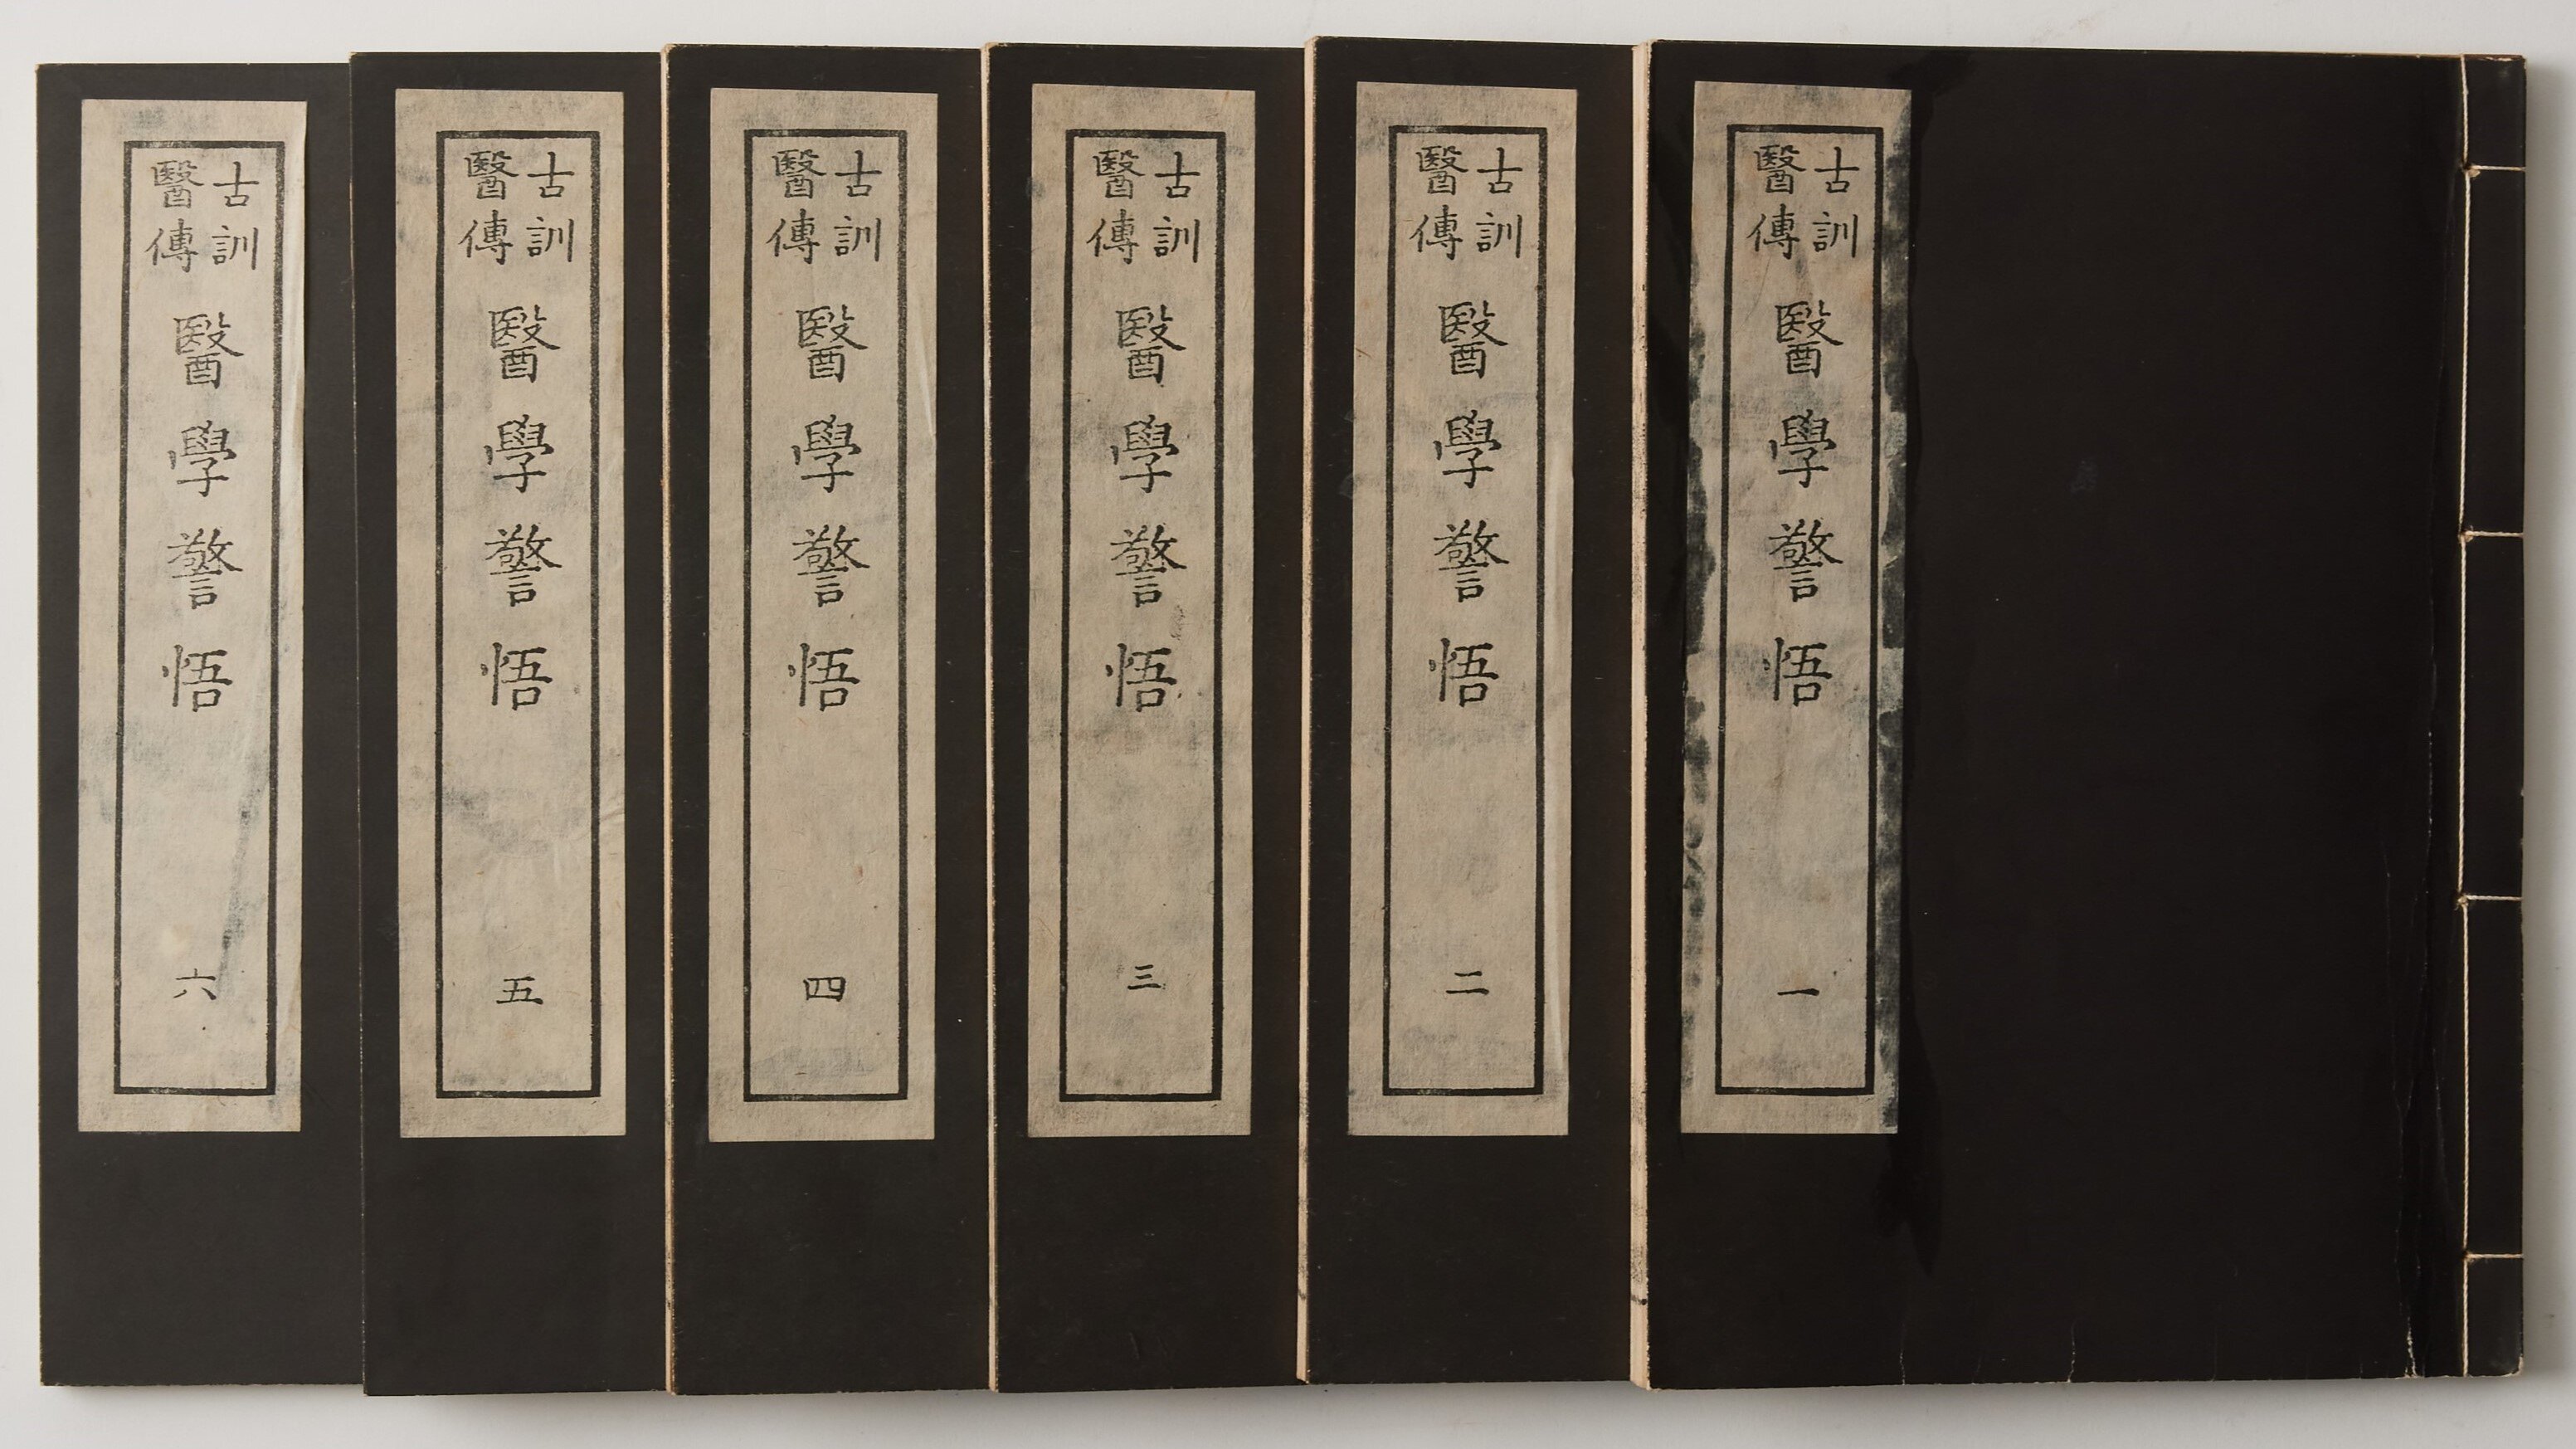 古訓
醫傳
醫學警悟
一
古訓
醫傳
醫學警悟
二
古訓
醫傳
醫學警悟
三
古訓
醫傳
醫學警悟
四
古訓
醫傳
醫學警悟
五
古訓
醫傳
醫學警悟
六